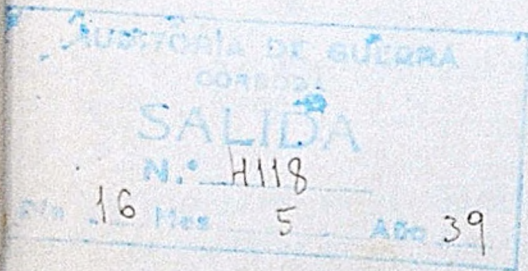 AUDITORÍA DE GUERRA
CÓRDOBA
SALIDA
N.º 4118
Día 16 Mes 5 Año 39